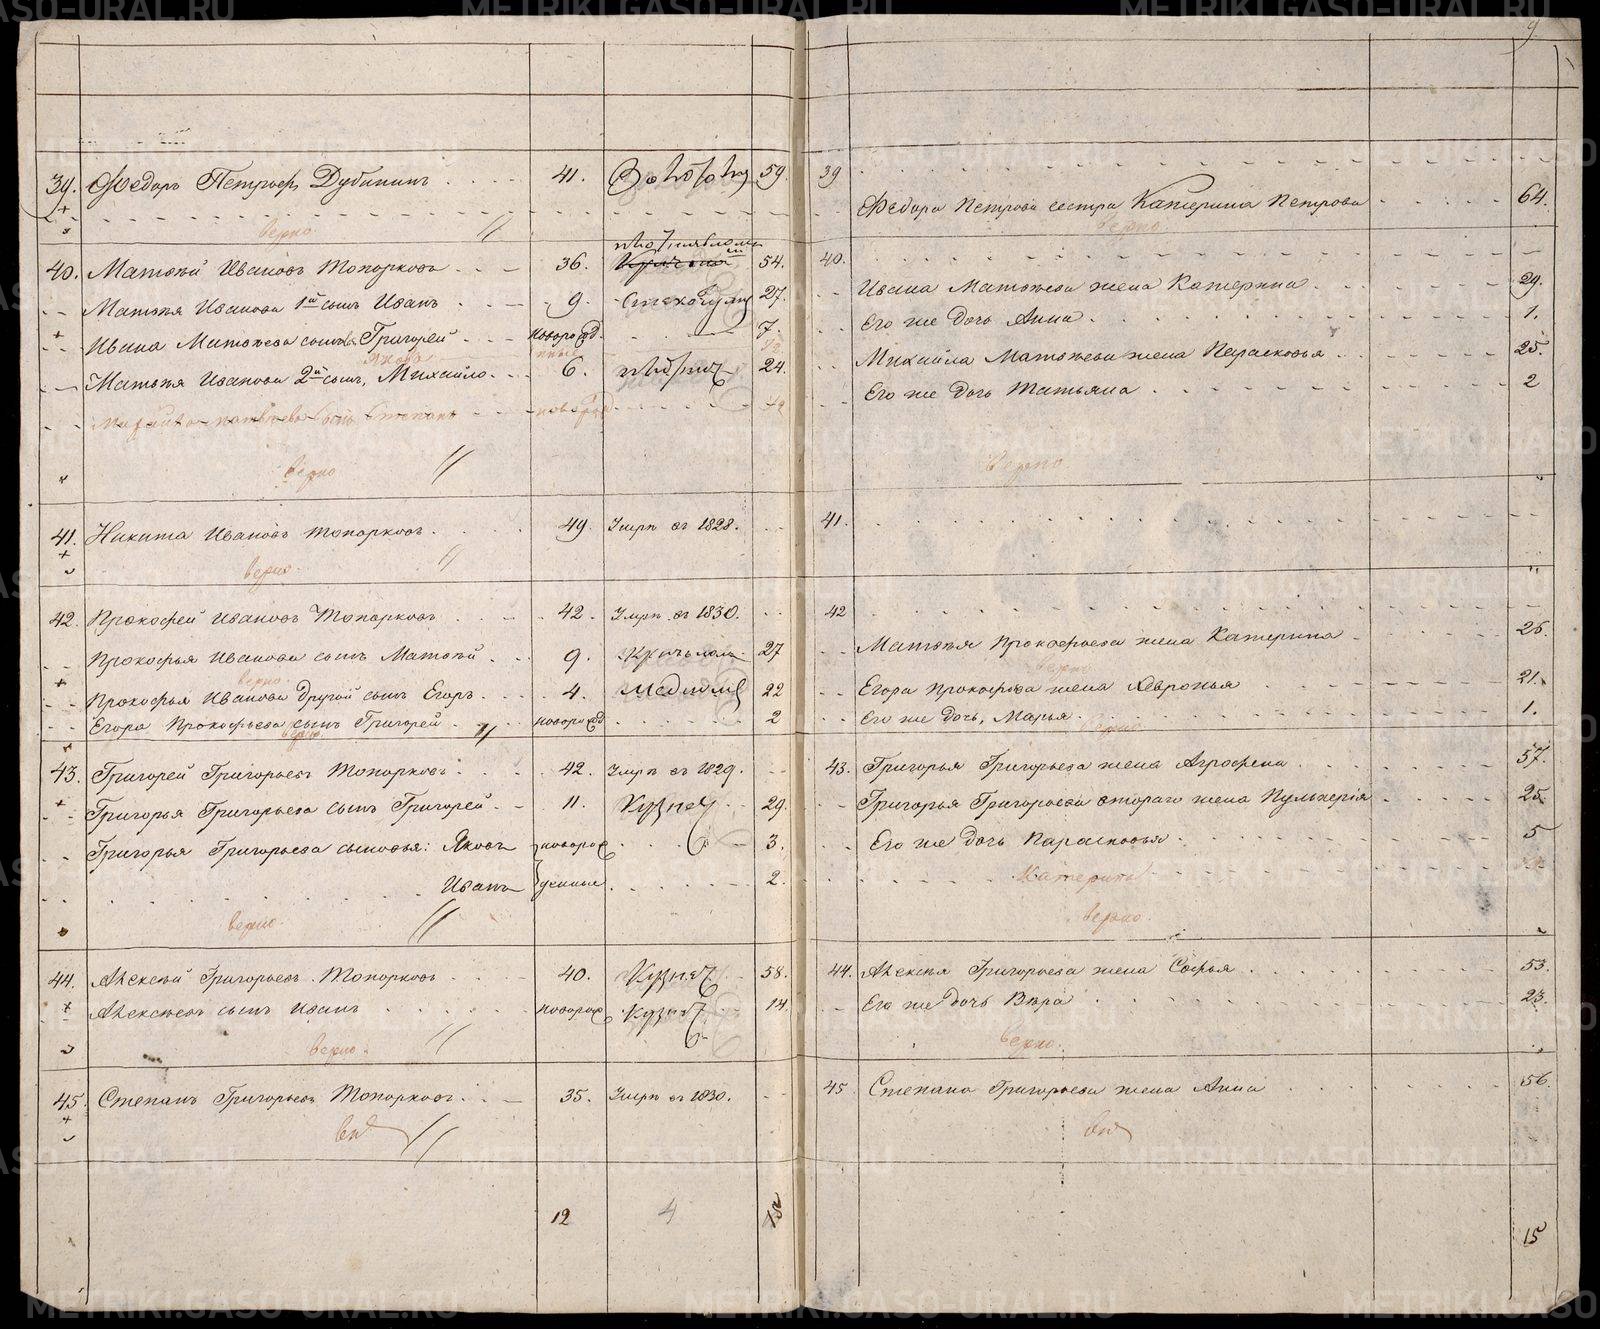 9
39. Федоръ Петровъ Дубининъ 41. 59.
верно
40. Матвѣй Ивановъ Топорковъ 36. 54.
Матвѣя Иванова 1й сынъ Иванъ 9. 27.
Ивана Матвѣева сынъ Григорей новорожд 7.
Якова
Матвѣя Иванова 2й сынъ, Михайло 6. 24.
Степанъ новорожд
верно
41. Никита Ивановъ Топорковъ 49. Умре въ 1828.
верно.
42. Прокофей Ивановъ Топорковъ 42. Умре въ 1830.
Прокофья Иванова сынъ Матвѣй 9. 27
верно.
Прокофья Иванова другой сынъ Егоръ 4. 22
Егора Прокофьева сынъ Григорей новорожд 2
верно.
43. Григорей Григорьевъ Топорковъ 42. Умре въ 1829.
Григорья Григорьева сынъ Григорей 11. Кузнец 29.
Григорья Григорьева сыновья: Яковъ новорож 3.
Иванъ денные 2.
верно.
44. Алексѣй Григорьевъ Топорковъ 40. Кузнец 58.
Алексѣевъ сынъ Иванъ новорож Кузнец 14.
верно.
45. Степанъ Григорьевъ Топорковъ 35. Умре въ 1830.
12 4
39
Федора Петрова сестра Катерина Петрова 64.
верно.
40.
Ивана Матвѣева жена Катерина 29.
Его же дочь Анна 1.
Михайла Матвѣева жена Парасковья 25.
Его же дочь Татьяна 2
верно
41.
42
Матвѣя Прокофьева жена Катерина 26.
верно
Егора Прокофьева жена Хевронья 21.
Его же дочь, Марья 1.
верно
43. Григорья Григорьева жена Агрофена 57.
Григорья Григорьева втораго жена Пульхерія 25.
Его же дочь Парасковья 5
Катерина
верно.
44. Алексѣя Григорьева жена Софья 53.
Его же дочь Вѣра 23.
верно.
45 Степана Григорьева жена Анна 56.
15
METRIKI.GASO-URAL.RU